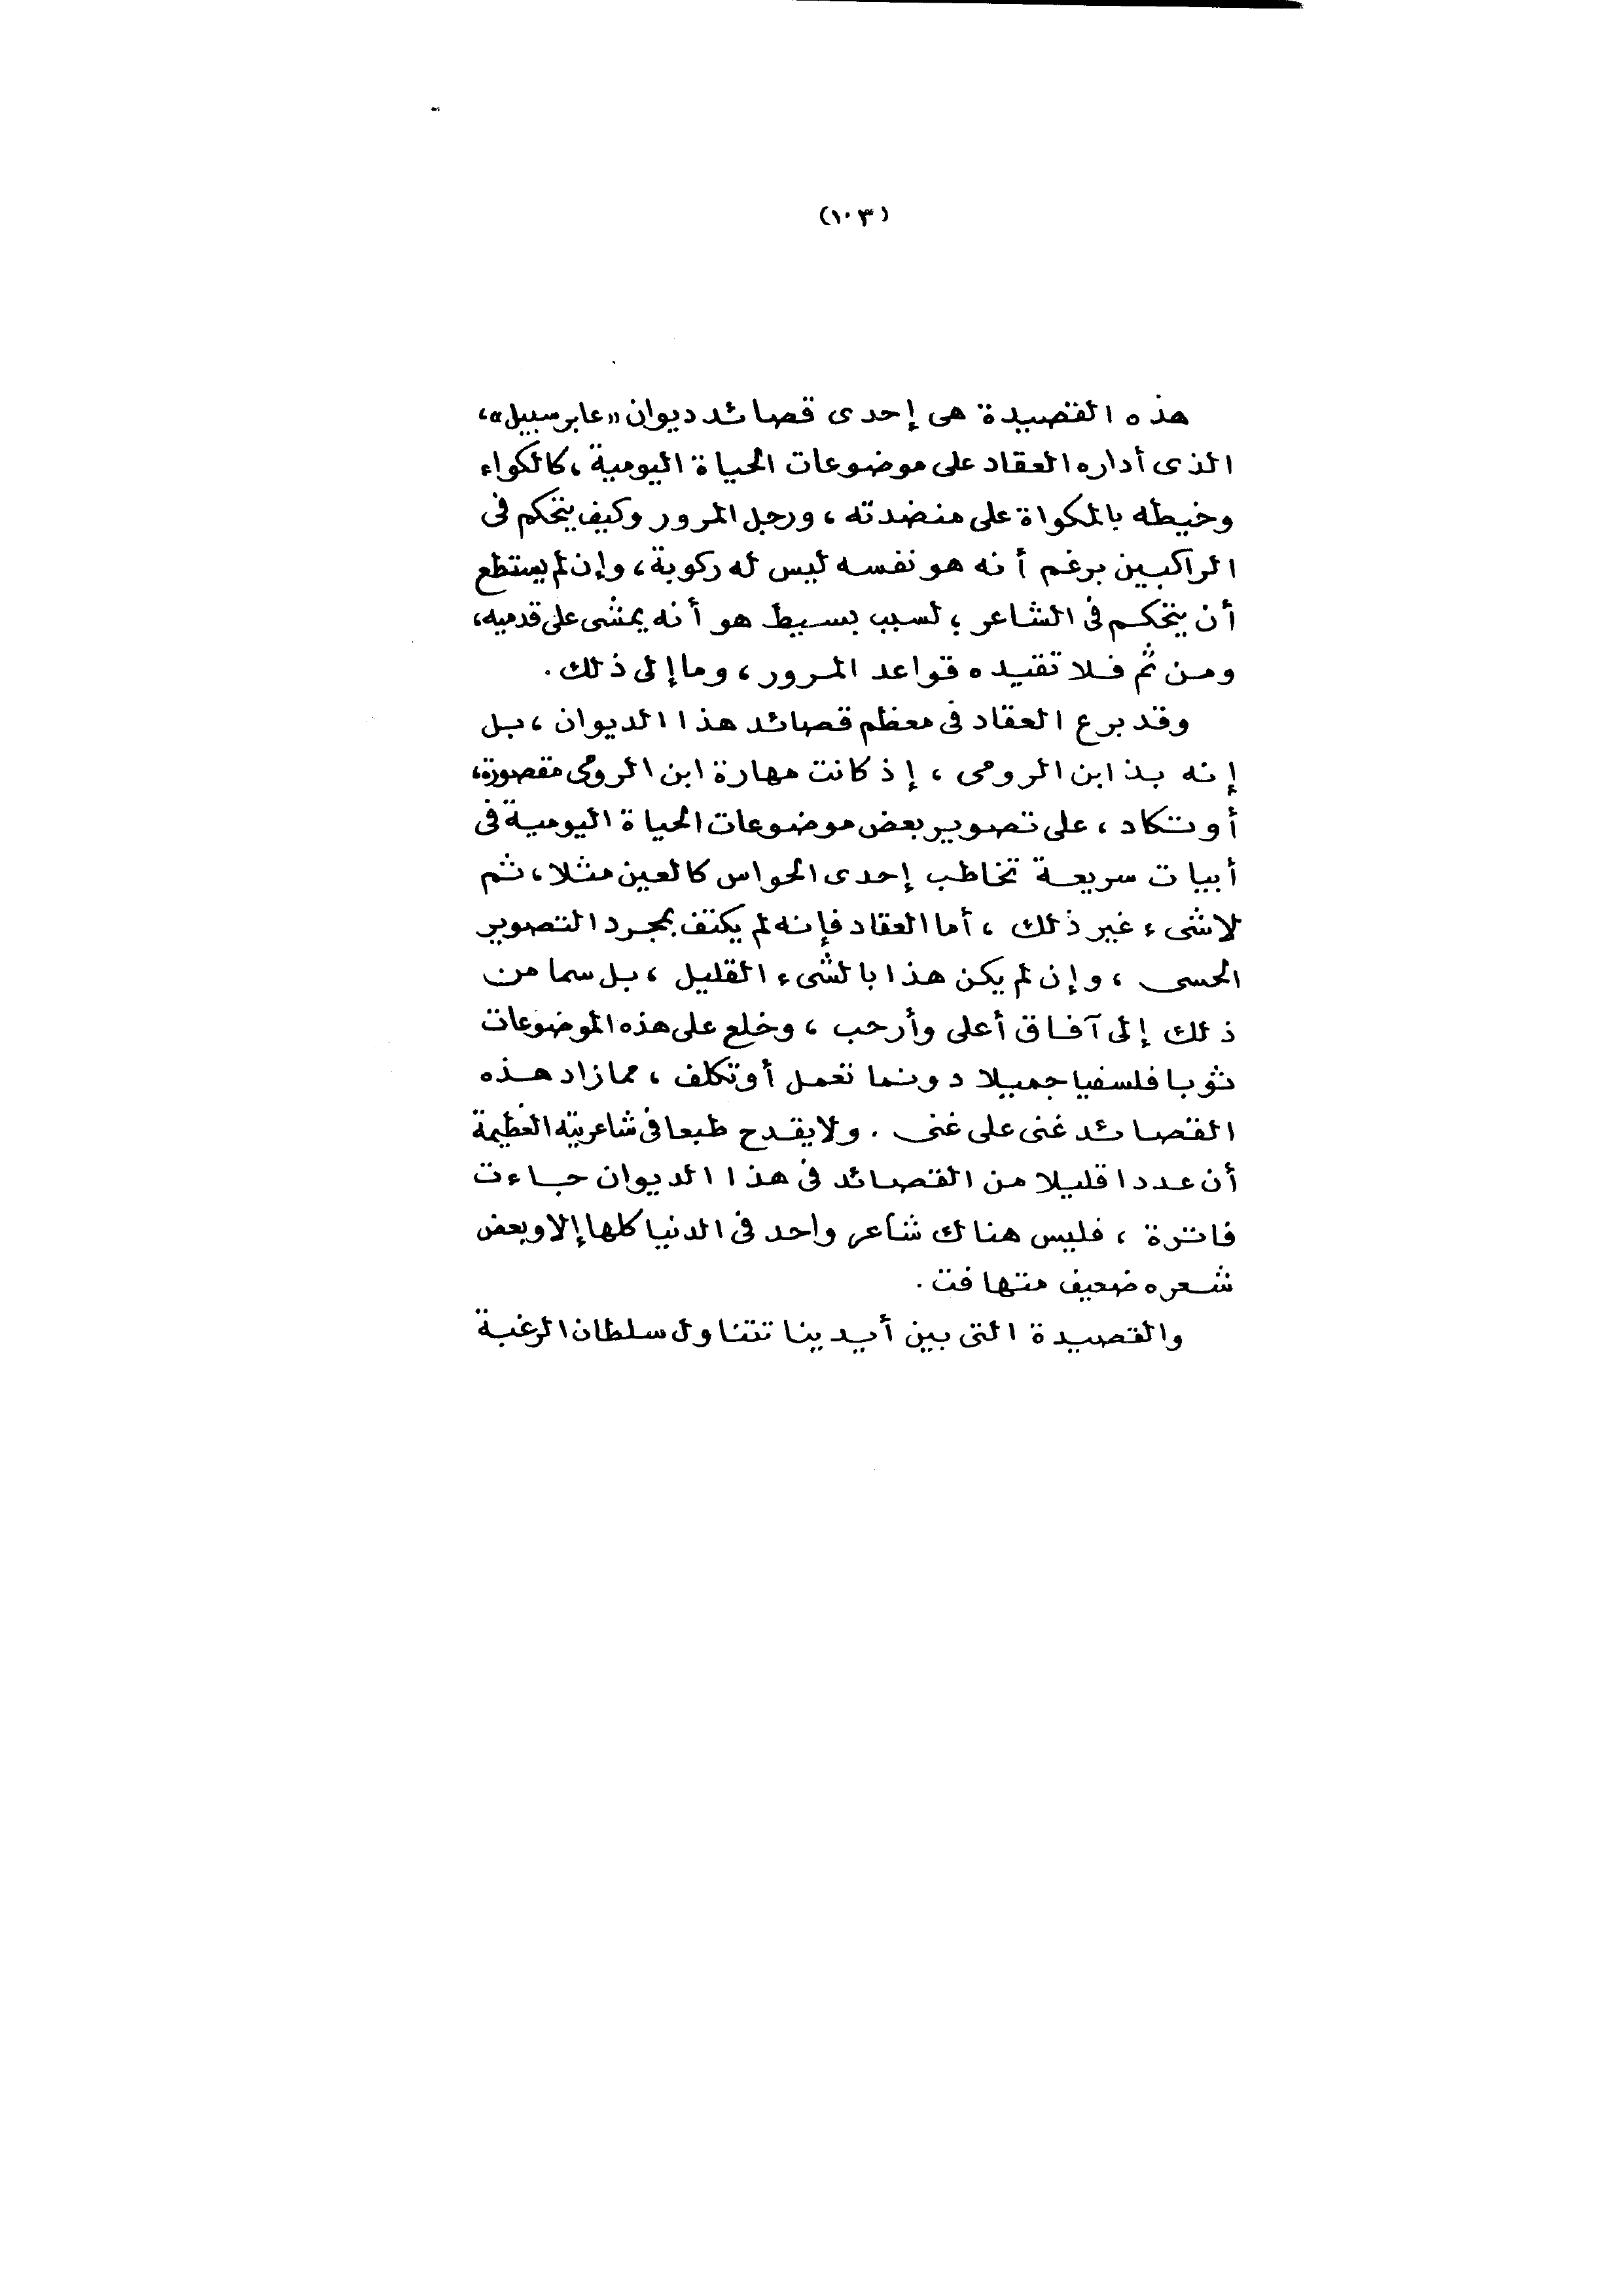 (١٠٣)
هذه القصيدة هى إحدى قصائد ديوان «عابر سبيل»،
الذى أداره العقاد على موضوعات الحياة اليومية، كالكواء
وخيطه بالمكواة على منضدته، ورجل المرور وكيف يتحكم فى
الراكبين برغم أنه هو نفسه ليس له ركوبة، وإن لم يستطع
أن يتحكم فى الشاعر؛ لسبب بسيط هو أنه يمشى على قدميه،
ومن ثم فلا تقيده قواعد المرور، وما إلى ذلك.
وقد برع العقاد فى معظم قصائد هذا الديوان، بل
إنه بذ ابن الرومى، إذ كانت مهارة ابن الرومى مقصورة،
أو تكاد، على تصوير بعض موضوعات الحياة اليومية فى
أبيات سريعة تخاطب إحدى الحواس كالعين مثلا، ثم
لا شىء غير ذلك، أما العقاد فإنه لم يكتف بمجرد التصوير
الحسى، وإن لم يكن هذا بالشىء القليل، بل سما من
ذلك إلى آفاق أعلى وأرحب، وخلع على هذه الموضوعات
ثوبا فلسفيا جميلا دونما تعمل أو تكلف، مما زاد هذه
القصائد غنى على غنى. ولا يقدح طبعا فى شاعريته العظيمة
أن عددا قليلا من القصائد فى هذا الديوان جاءت
فاترة، فليس هناك شاعر واحد فى الدنيا كلها إلا وبعض
شعره ضعيف متهافت.
والقصيدة التى بين أيدينا تتناول سلطان الرغبة